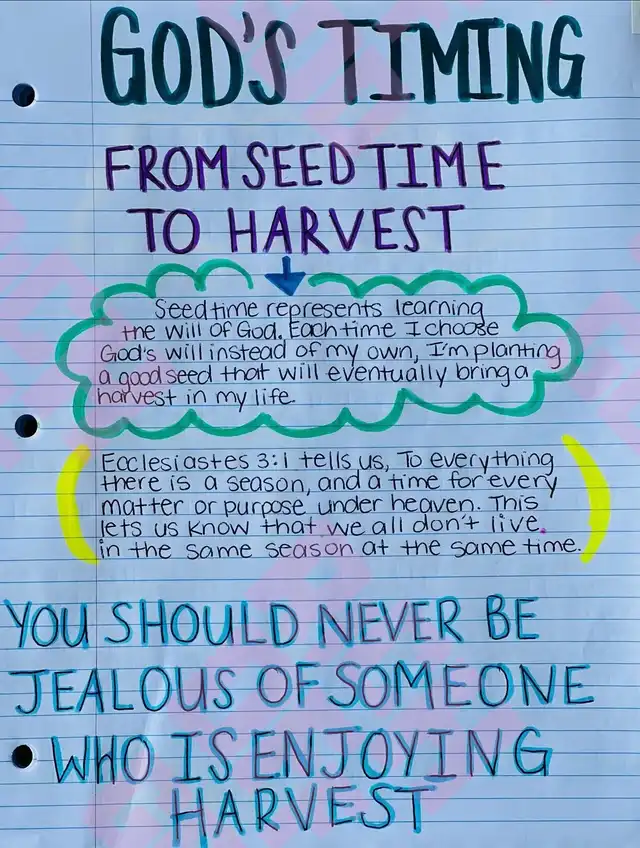 GOD'S TIMING
FROM SEEDTIME
TO HARVEST
Seedtime represents learning
the will of God. Each time I choose
God's will instead of my own, I'm planting
a good seed that will eventually bring a
harvest in my life.
Ecclesiastes 3:1 tells us, To everything
there is a season, and a time for every
matter or purpose under heaven. This
lets us know that we all don't live
in the same season at the same time.
YOU SHOULD NEVER BE
JEALOUS OF SOMEONE
WHO IS ENJOYING
HARVEST